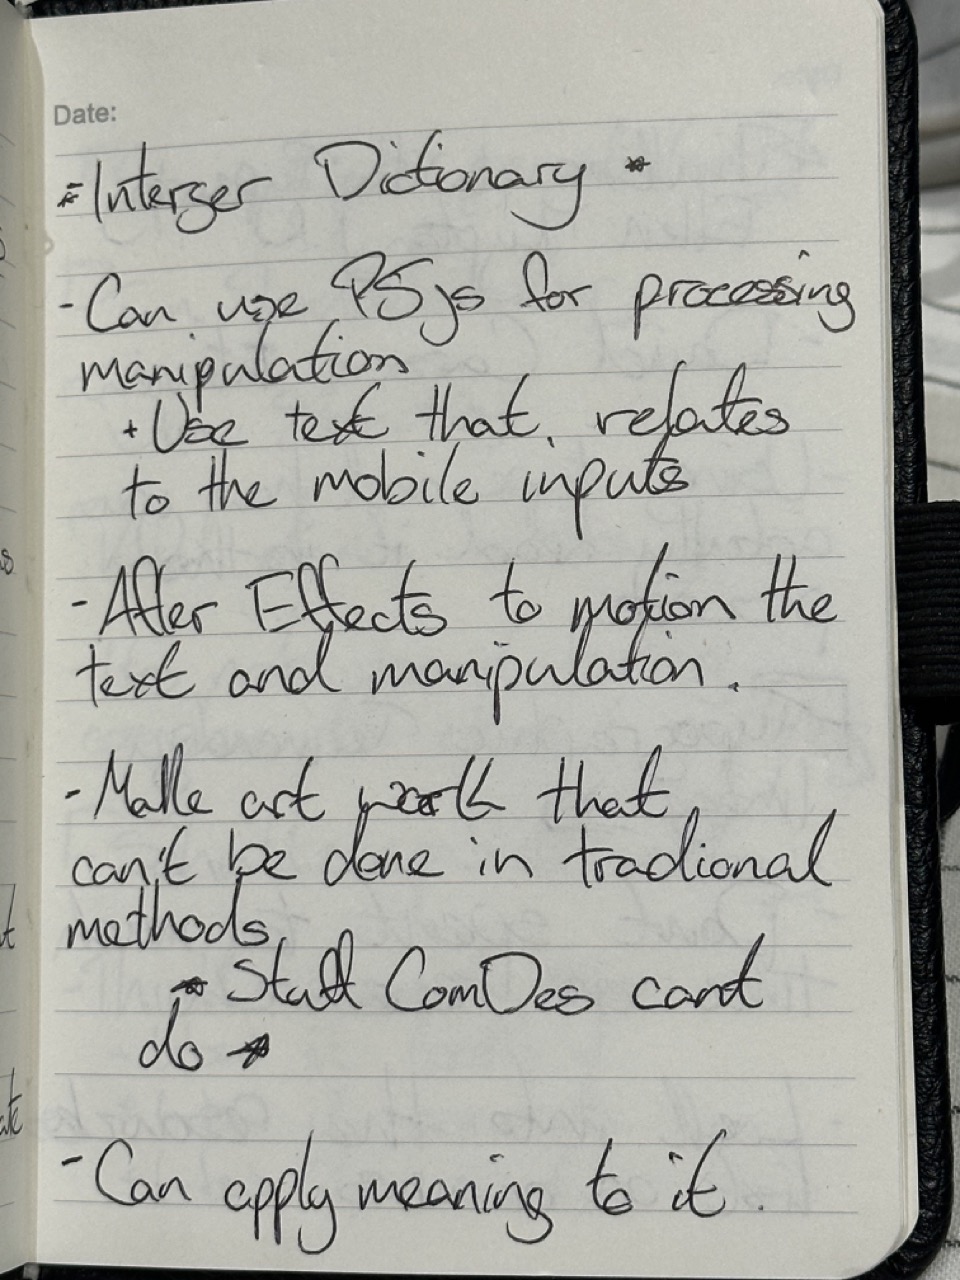 Date:
- Interger Dictionary *
- Can use P5js for processing
manipulation
+ Use text that, relates
to the mobile inputs
- After Effects to motion the
text and manipulation.
- Make art work that
can't be done in tradional
methods,
* Stuff ComDes can't
do *
- Can apply meaning to it.